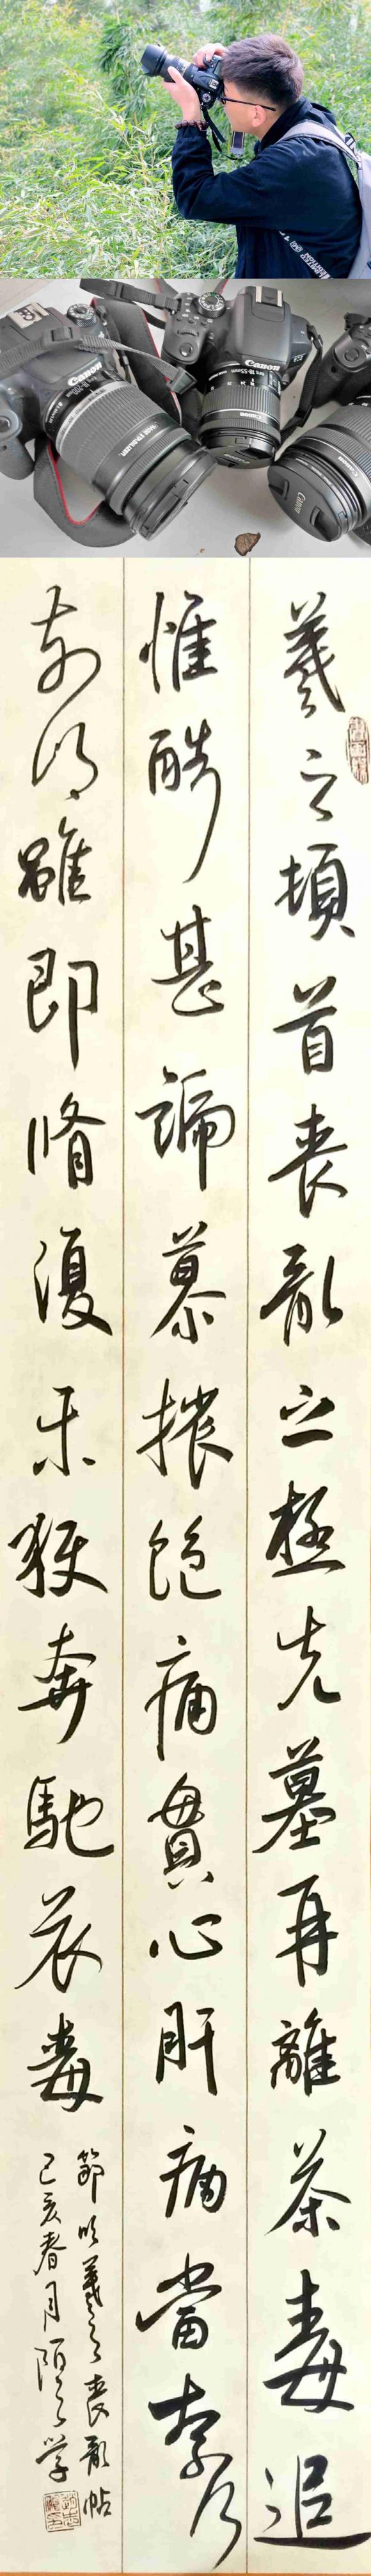 Canon
IMAGE STABILIZER
Canon
EFS 18-55mm
Canon
羲之頓首喪亂之極先墓再離荼毒追
惟酷甚號慕摧絕痛貫心肝痛當奈何
奈何雖即脩復未獲奔馳哀毒
節臨羲之喪亂帖
己亥春月